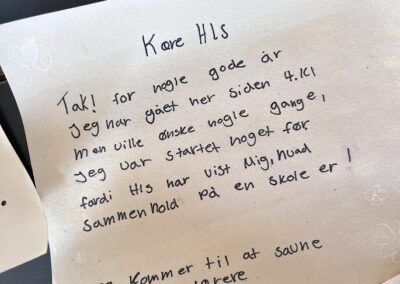 Kære Hls
Tak! for nogle gode år
jeg har gået her siden 4.kl
men ville ønske nogle gange,
jeg var startet noget før
fordi Hls har vist mig, hvad
sammenhold på en skole er!
kommer til at savne